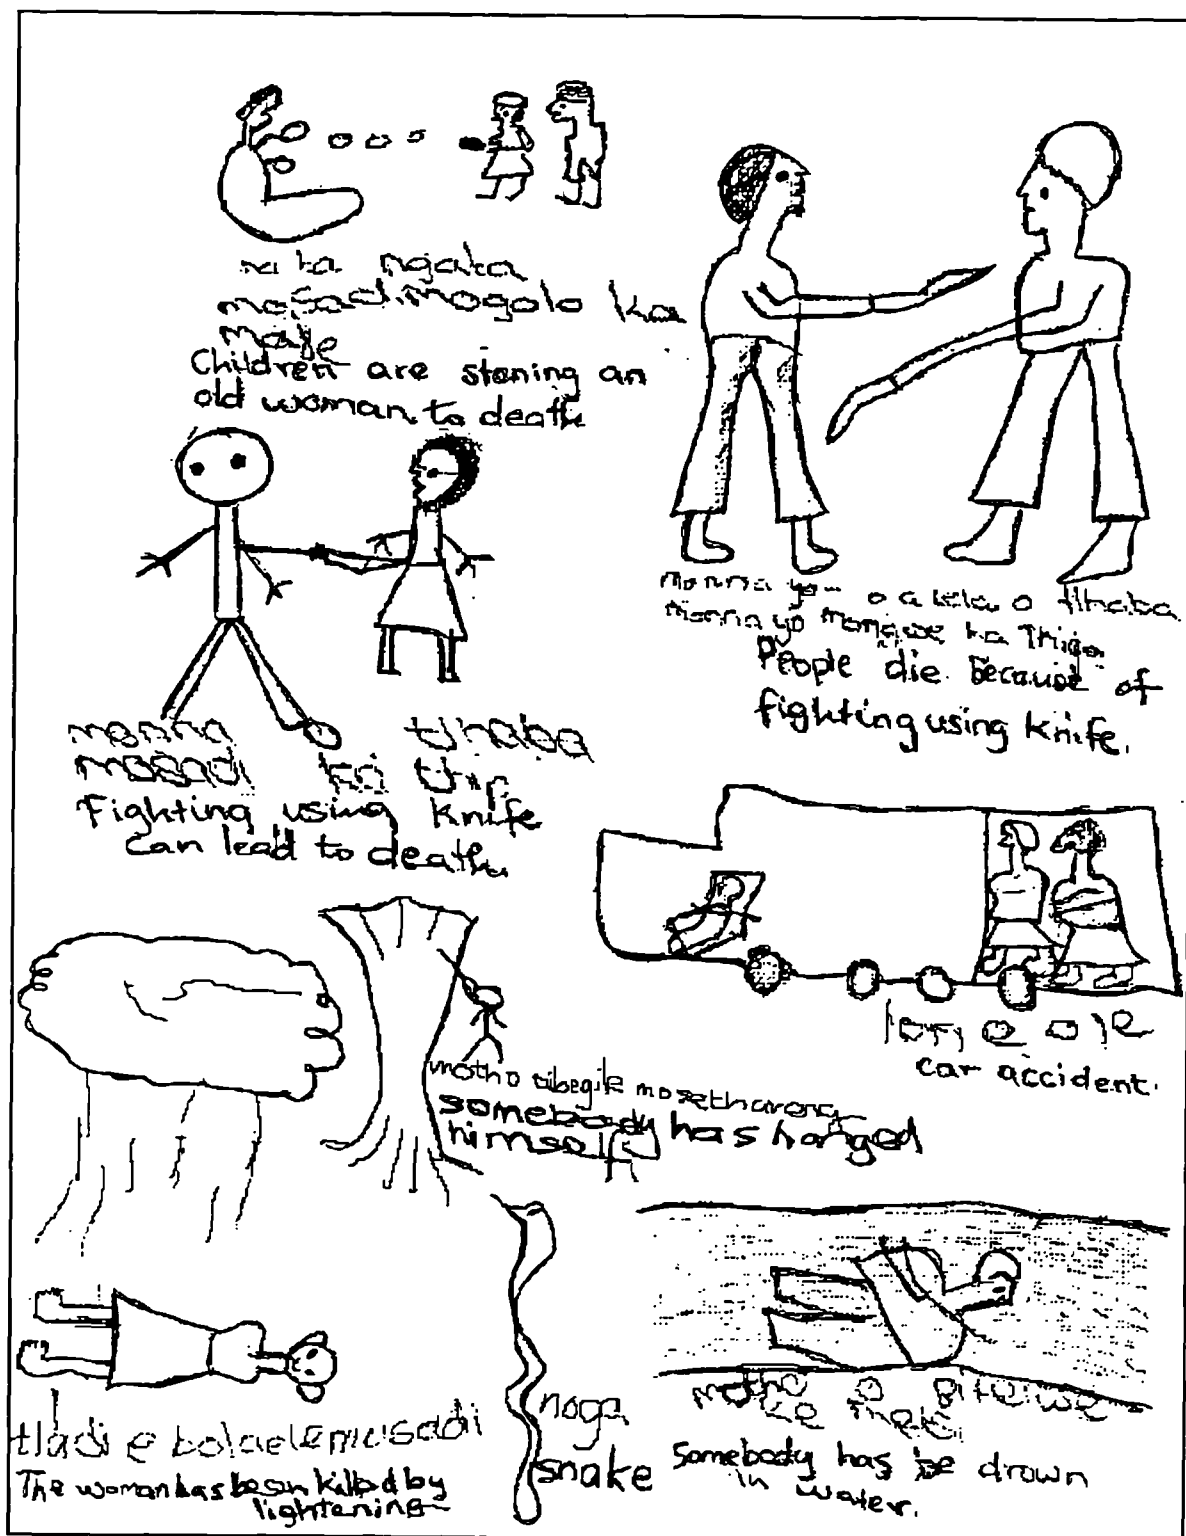 ngaka
mogolo ka
Children are stoning an
old woman to death
monna o tlhaba
monna yo mongwe ka
People die because of
fighting using knife.
monna tlhaba
mosadi ka thip
Fighting using knife
can lead to death
car accident.
motho
somebody has hanged
himself
tladi e bolaele mosadi
The woman has been killed by
lightening
noga
snake
motho o
Somebody has be drown
in water.